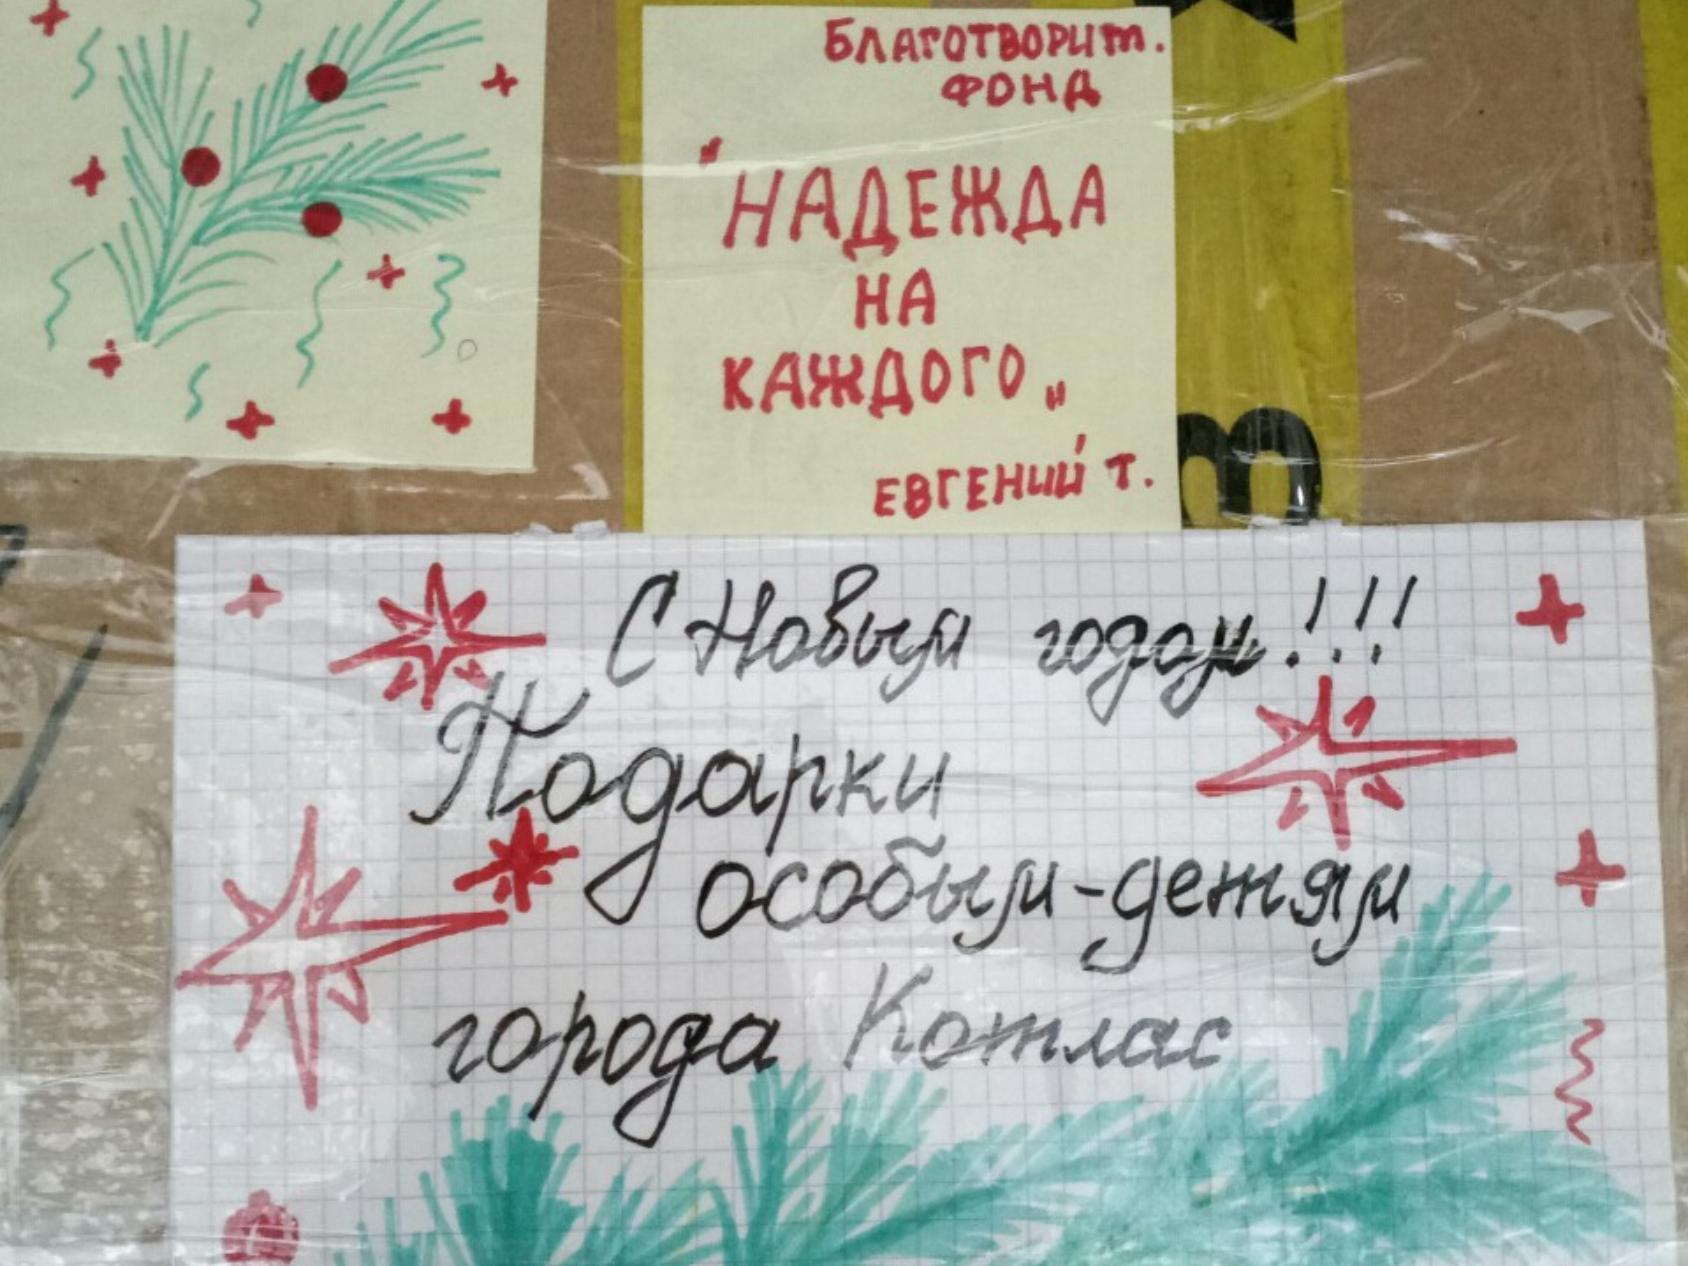 БЛАГОТВОРИТ.
ФОНД
"НАДЕЖДА
НА
КАЖДОГО"
ЕВГЕНИЙ Т.
m
С Новым годом!!!
Подарки
особым-детям
города Котлас